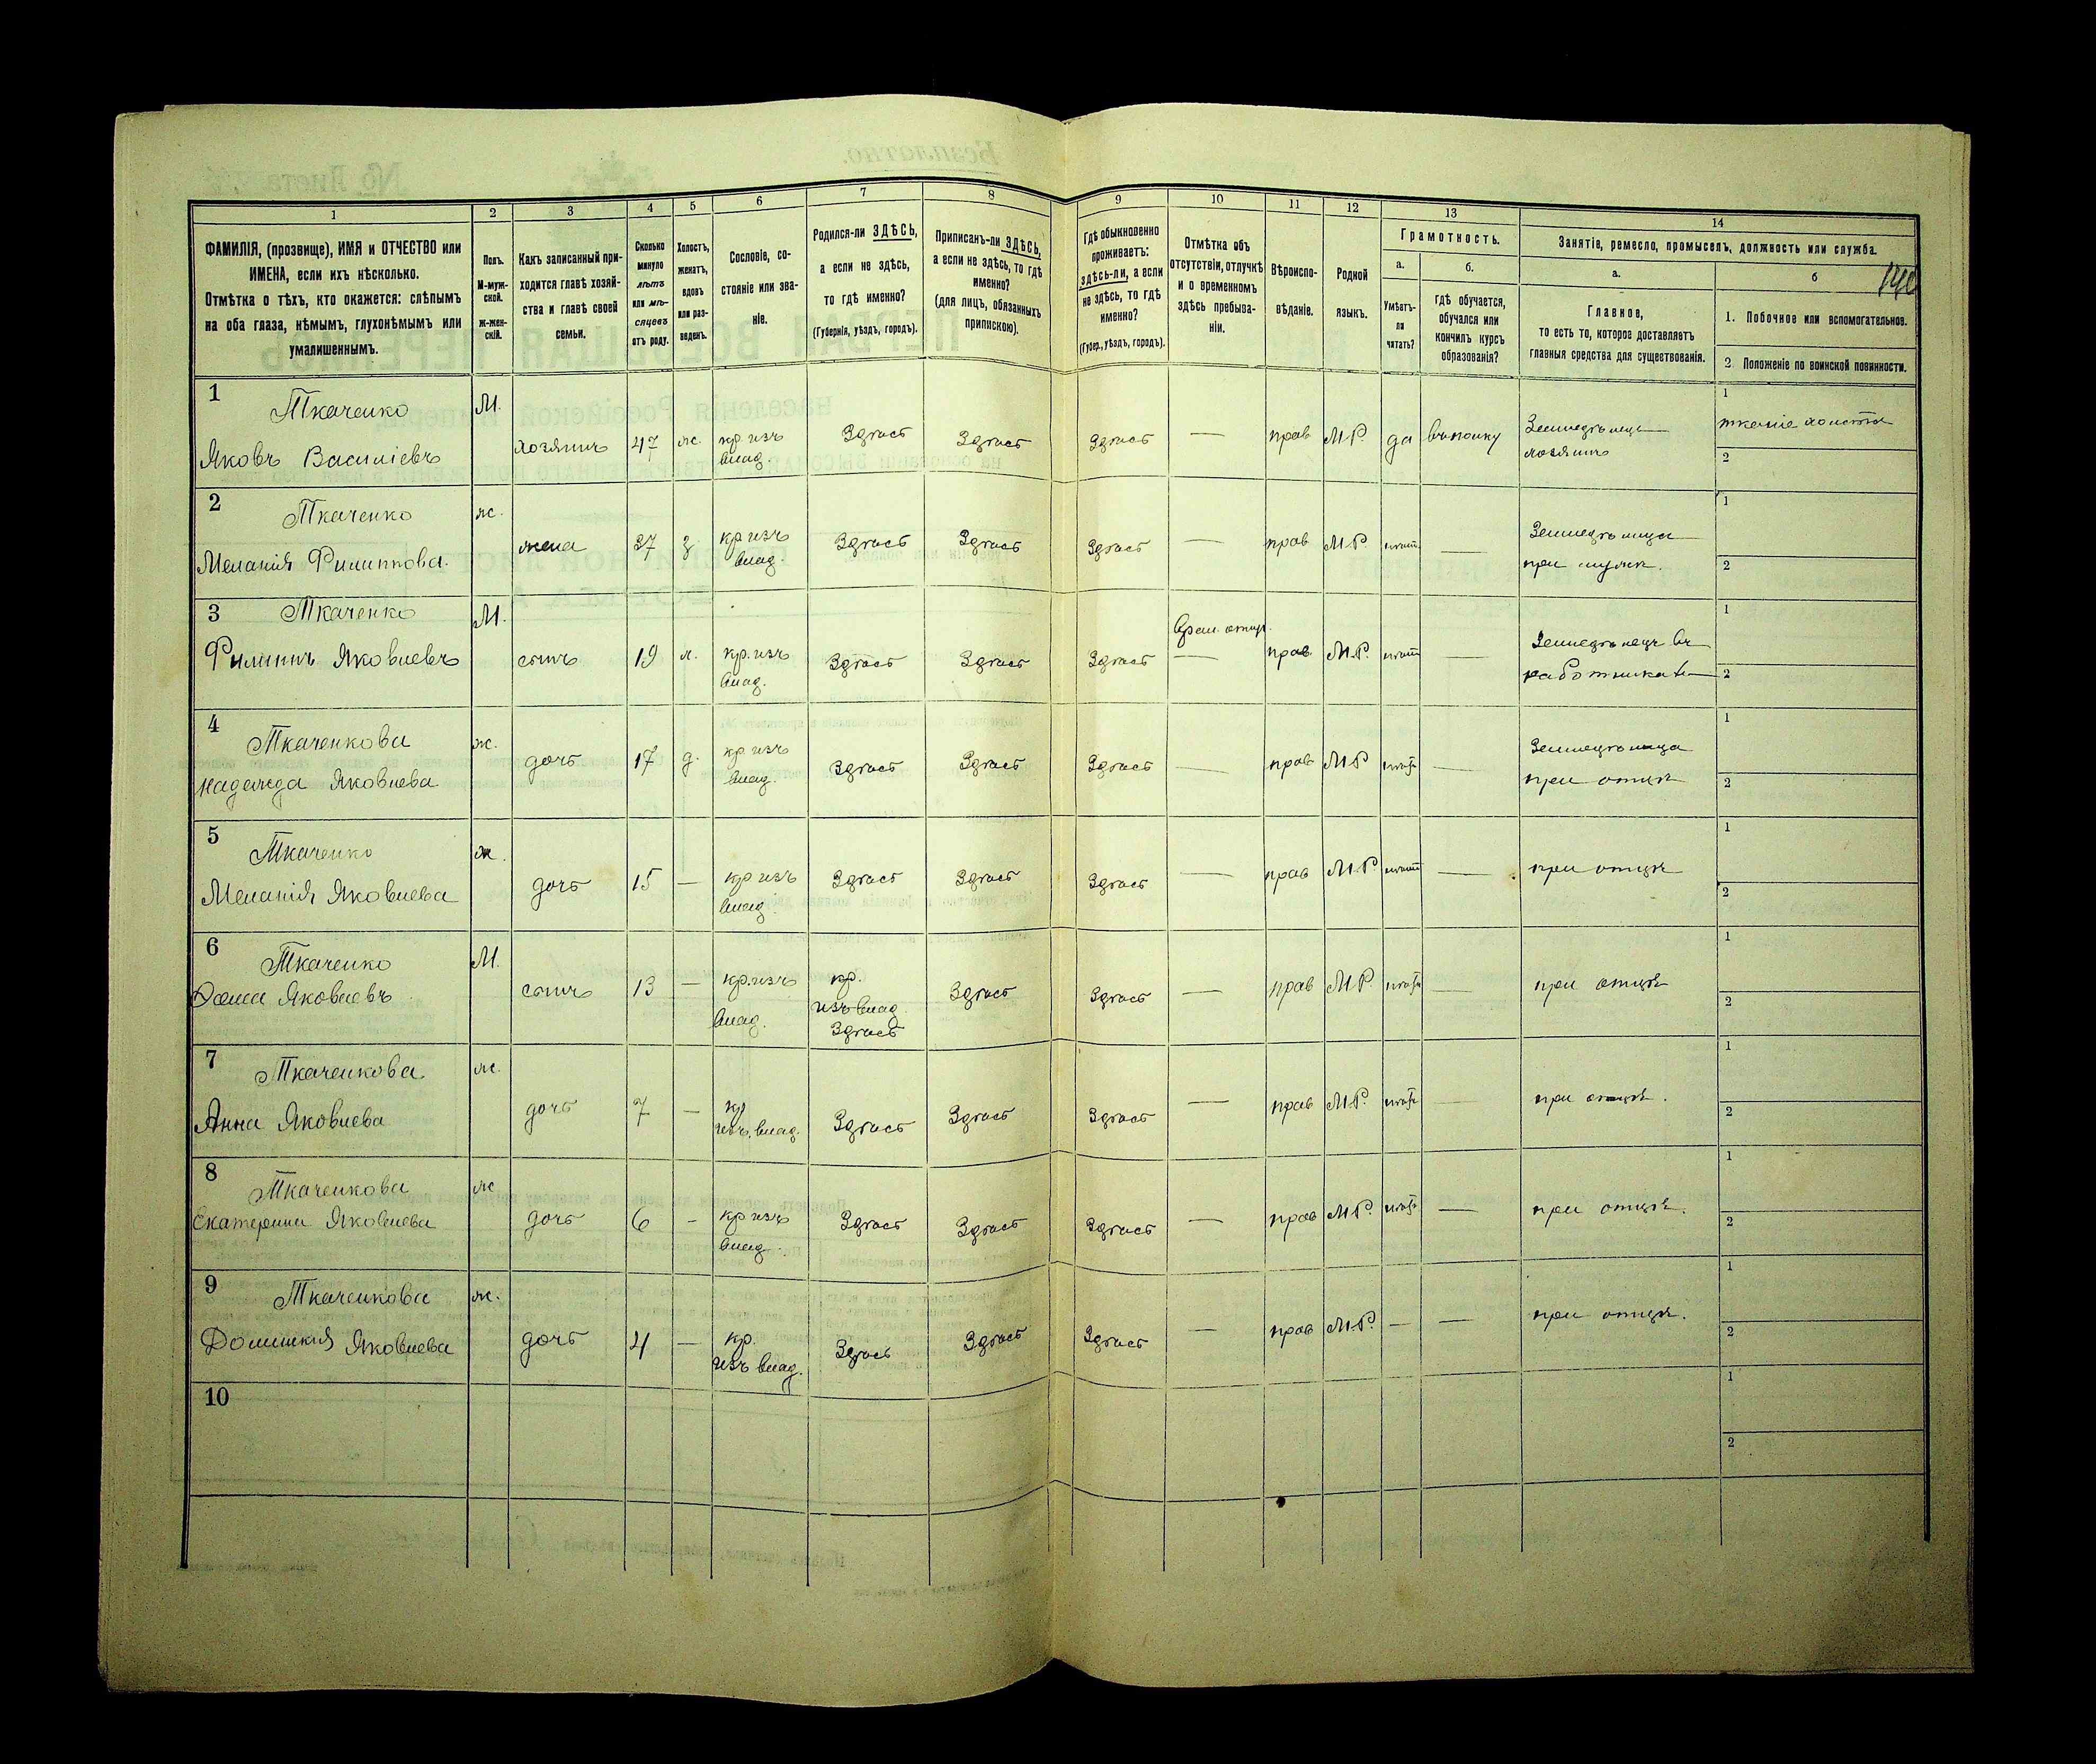 1 2 3 4 5 6 7 8 9 10 11 12 13 14
ФАМИЛІЯ, (прозвище), ИМЯ и ОТЧЕСТВО или
ИМЕНА, если ихъ нѣсколько.
Отмѣтка о тѣхъ, кто окажется: слѣпымъ
на оба глаза, нѣмымъ, глухонѣмымъ или
умалишеннымъ.
Полъ.
М-муж-
ской.
ж-жен-
скій.
Какъ записанный при-
ходится главѣ хозяй-
ства и главѣ своей
семьи.
Сколько
минуло
лѣтъ
или мѣ-
сяцевъ
отъ роду.
Холостъ,
женатъ,
вдовъ
или раз-
веденъ.
Сословіе, со-
стояніе или зва-
ніе.
Родился-ли ЗДѢСЬ,
а если не здѣсь,
то гдѣ именно?
(Губернія, уѣздъ, городъ).
Приписанъ-ли ЗДѢСЬ,
а если не здѣсь, то гдѣ
именно?
(для лицъ, обязанныхъ
припискою).
Гдѣ обыкновенно
проживаетъ:
здѣсь-ли, а если
не здѣсь, то гдѣ
именно?
(Губер., уѣздъ, городъ).
Отмѣтка объ
отсутствіи, отлучкѣ
и о временномъ
здѣсь пребыва-
ніи.
Вѣроиспо-
вѣданіе.
Родной
языкъ.
Грамотность.
а.
Умѣетъ-
ли
читать?
б.
гдѣ обучается,
обучался или
кончилъ курсъ
образованія?
Занятіе, ремесло, промыселъ, должность или служба.
а.
Главное,
то есть то, которое доставляетъ
главныя средства для существованія.
б
1. Побочное или вспомогательное.
2 Положеніе по воинской повинности.
1 Ткаченко М.
Яковъ Василіевъ хозяинъ 47 ж. кр. изъ
влад. Здѣсь Здѣсь Здѣсь — прав М.Р. да
Земледѣлецъ
хозяинъ
1 ткачіе холста
2
2 Ткаченко ж.
Меланія Филиппова. жена 37 з. кр изъ
влад. Здѣсь Здѣсь Здѣсь — прав М.Р. нѣтъ —
Земледѣлица
при муж.
1
2
3 Ткаченко М.
Филиппъ Яковлевъ сынъ 19 х. кр. изъ
влад. Здѣсь Здѣсь Здѣсь
—
прав М.Р. нѣтъ —
Земледѣлецъ въ
работникахъ
1
2
4 Ткаченкова ж.
Надежда Яковлева дочь 17 д. кр изъ
влад. Здѣсь Здѣсь Здѣсь — прав М.Р нѣтъ —
Земледѣлица
при отцѣ
1
2
5 Ткаченко ж.
Меланія Яковлева дочь 15 — кр изъ
влад. Здѣсь Здѣсь Здѣсь — прав М.Р. нѣтъ —
при отцѣ
1
2
6 Ткаченко М.
Яковлевъ сынъ 13 — кр. изъ
влад.
кр.
изъ влад.
Здѣсь
Здѣсь Здѣсь — прав М.Р. нѣтъ —
при отцѣ
1
2
7 Ткаченкова ж.
Анна Яковлева дочь 7 — кр
изъ влад. Здѣсь Здѣсь Здѣсь — прав М.Р. нѣтъ —
при отцѣ.
1
2
8 Ткаченкова ж
Екатерина Яковлева дочь 6 - кр изъ
влад. Здѣсь Здѣсь Здѣсь — прав М.Р. нѣтъ —
при отцѣ.
1
2
9 Ткаченкова ж.
Яковлева дочь 4 — кр.
изъ влад. Здѣсь Здѣсь Здѣсь — прав М.Р. — —
при отцѣ.
1
2
10
1
2